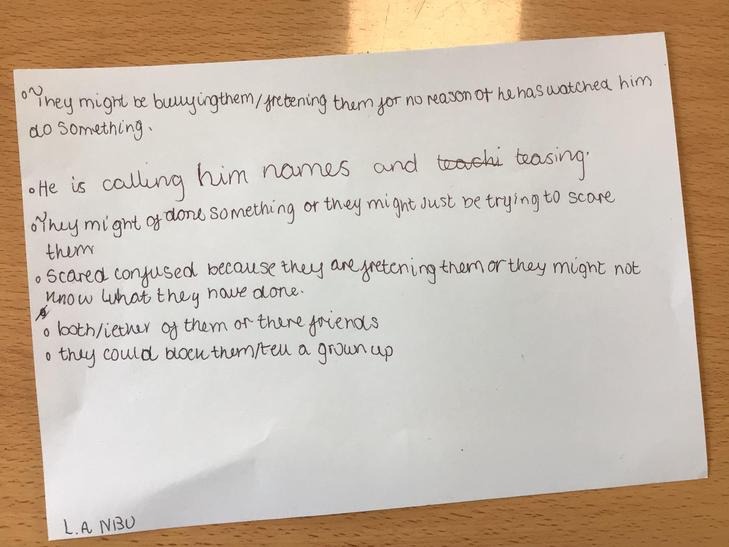 • They might be bullyingthem/fretening them for no reason or he has watched him
do something.
• He is calling him names and teachi teasing.
• They might of done something or they might Just be trying to scare
them
• Scared confused because they are fretening them or they might not
know what they have done.
• both/iether of them or there friends
• they could block them/tell a grown up
L.A NBU